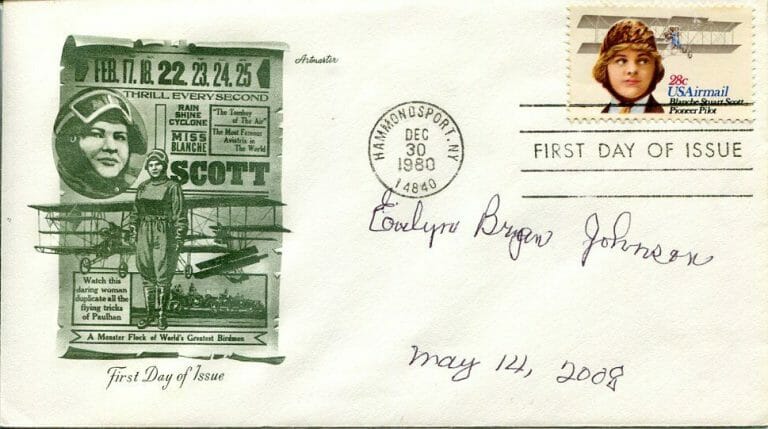 Artmaster
FEB. 17. 18. 22. 23. 24. 25
THRILL EVERY SECOND
RAIN
SHINE
CYCLONE
MISS
BLANCHE
"The Tomboy
of The Air"
The Most Famous
Aviatrix in
The World
SCOTT
Watch this
daring woman
duplicate all the
flying tricks
of Paulhan
A Monster Flock of World's Greatest Birdmen
First Day of Issue
HAMMONDSPORT, NY
DEC
30
1980
14840
28c
USAirmail
Blanche Stuart Scott
Pioneer Pilot
FIRST DAY OF ISSUE
Evelyn Bryan Johnson
May 14, 2008